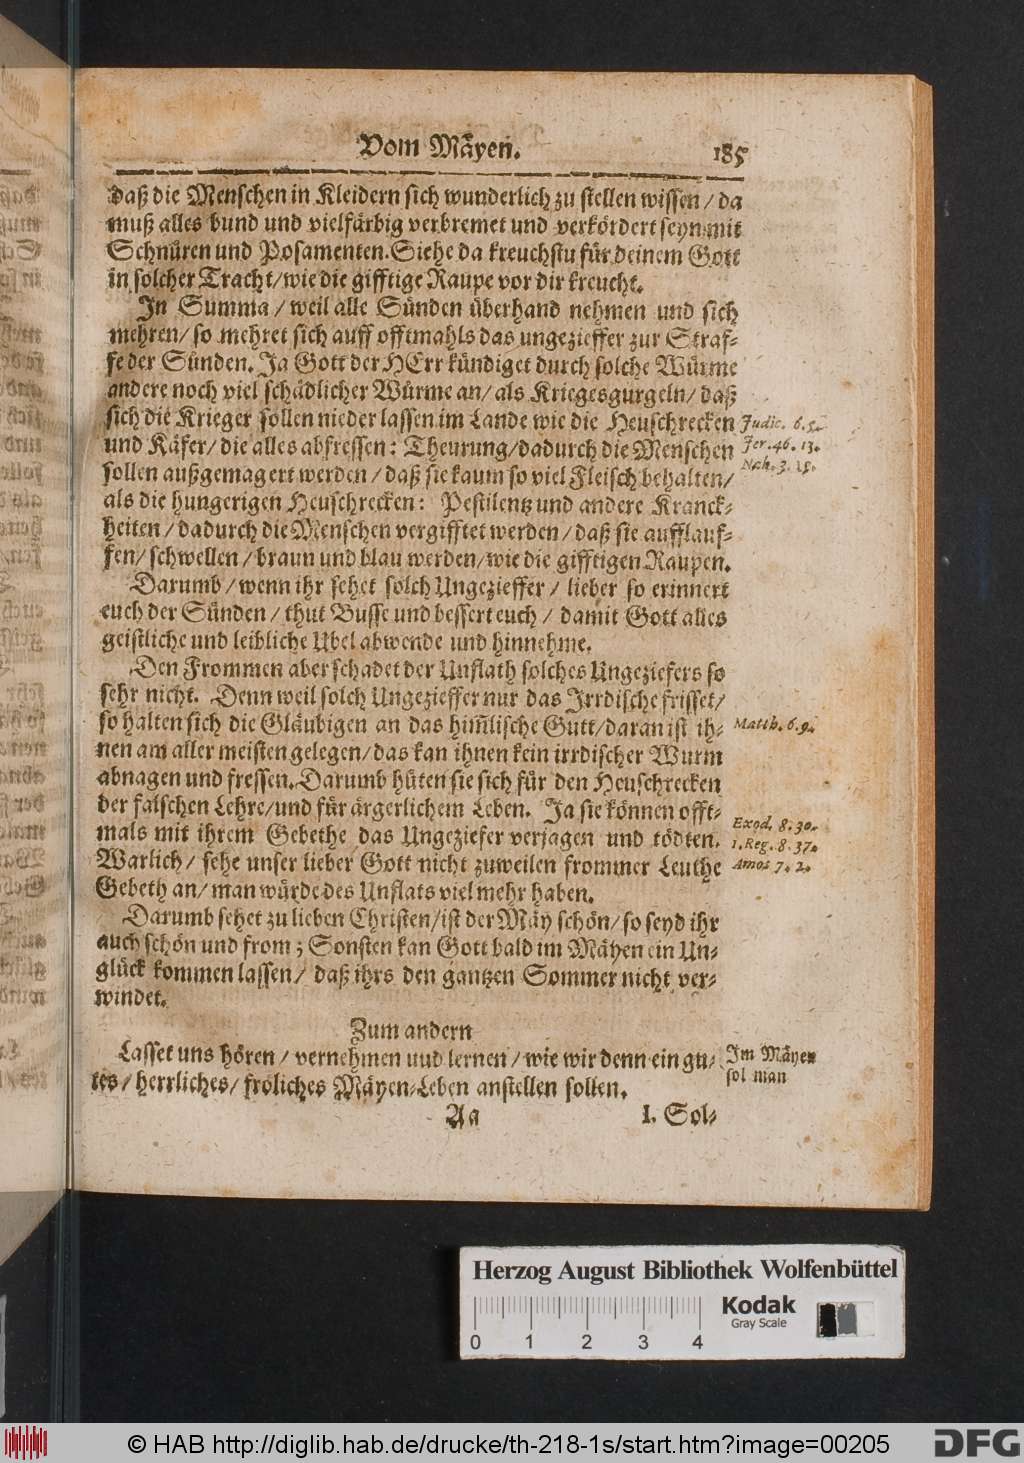 Vom Mäyen. 185
daß die Menschen in Kleidern sich wunderlich zu stellen wissen / da
muß alles bund und vielfärbig verbremet und verkördert seyn mit
Schnüren und Posamenten. Siehe da kreuchstu für deinem Gott
in solcher Tracht / wie die gifftige Raupe vor dir kreucht.
In Summa / weil alle Sünden überhand nehmen und sich
mehren / so mehret sich auff offtmahls das ungezieffer zur Straf-
fe der Sünden. Ja Gott der HErr kündiget durch solche Würme
andere noch viel schädlicher Würme an / als Kriegesgurgeln / daß
sich die Krieger sollen nieder lassen im Lande wie die Heuschrecken
Judic. 6. 5.
und Käfer / die alles abfressen: Theurung / dadurch die Menschen
Jer. 46. 13.
sollen außgemagert werden / daß sie kaum so viel Fleisch behalten /
Nah. 3. 15.
als die hungerigen Heuschrecken: Pestilentz und andere Kranck-
heiten / dadurch die Menschen vergifftet werden / daß sie aufflauf-
fen / schwellen / braun und blau werden / wie die gifftigen Raupen.
Darumb / wenn ihr sehet solch Ungezieffer / lieber so erinnert
euch der Sünden / thut Busse und bessert euch / damit Gott alles
geistliche und leibliche Ubel abwende und hinnehme.
Den Frommen aber schadet der Unflath solches Ungeziefers so
sehr nicht. Denn weil solch Ungezieffer nur das Irrdische frisset /
so halten sich die Gläubigen an das him̃lische Gutt / daran ist ih-
Matth. 6. 9.
nen am aller meisten gelegen / das kan ihnen kein irrdischer Wurm
abnagen und fressen. Darumb hüten sie sich für den Heuschrecken
der falschen Lehre / und für ärgerlichem Leben. Ja sie können offt-
mals mit ihrem Gebethe das Ungeziefer verjagen und tödten.
Exod. 8. 30.
1. Reg. 8. 37.
Warlich / sehe unser lieber Gott nicht zuweilen frommer Leuthe
Amos 7. 2.
Gebeth an / man würde des Unflats viel mehr haben.
Darumb sehet zu lieben Christen / ist der Mäy schön / so seyd ihr
auch schön und from; Sonsten kan Gott bald im Mäyen ein Un-
glück kommen lassen / daß ihrs den gantzen Sommer nicht ver-
windet.
Zum andern
Lasset uns hören / vernehmen uud lernen / wie wir denn ein gu-
Im Mäyen
sol man
tes / herrliches / fröliches Mäyen-Leben anstellen sollen.
Aa I. Sol-
Herzog August Bibliothek Wolfenbüttel
0 1 2 3 4
Kodak
Gray Scale
© HAB http://diglib.hab.de/drucke/th-218-1s/start.htm?image=00205
DFG